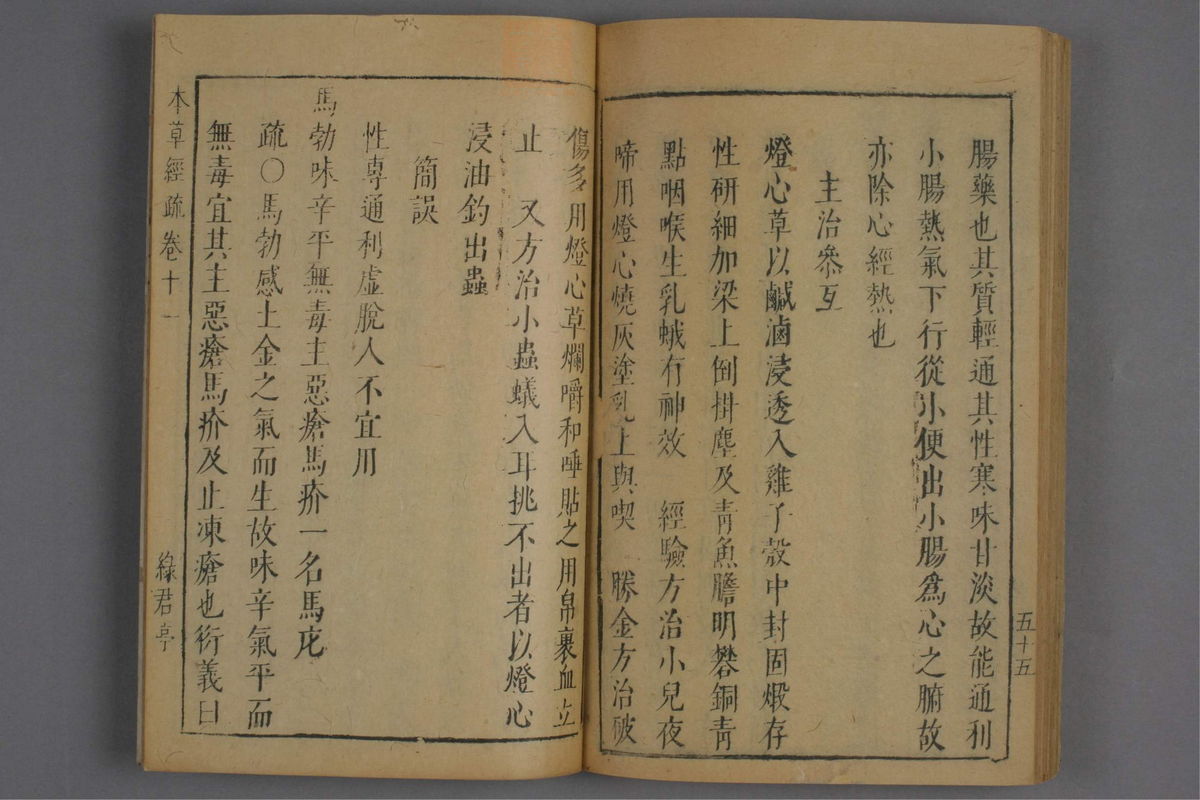 腸藥也其質輕通其性寒味甘淡故能通利
小腸熱氣下行從小便出小腸爲心之腑故
亦除心經熱也
主治叅互
燈心草以鹹滷浸透入雞子殼中封固煅存
性研細加梁上倒掛塵及青魚膽明礬銅青
點咽喉生乳蛾有神效 經驗方治小兒夜
啼用燈心燒灰塗乳上與喫 勝金方治破
五十五
傷多用燈心草爛嚼和唾貼之用帛裹血立
止 又方治小蟲蟻入耳挑不出者以燈心
浸油釣出蟲
簡誤
性專通利虛脫人不宜用
馬勃味辛平無毒主惡瘡馬疥一名馬庀
疏○馬勃感土金之氣而生故味辛氣平而
無毒宜其主惡瘡馬疥及止凍瘡也衍義曰
本草經疏卷十一
綠君亭